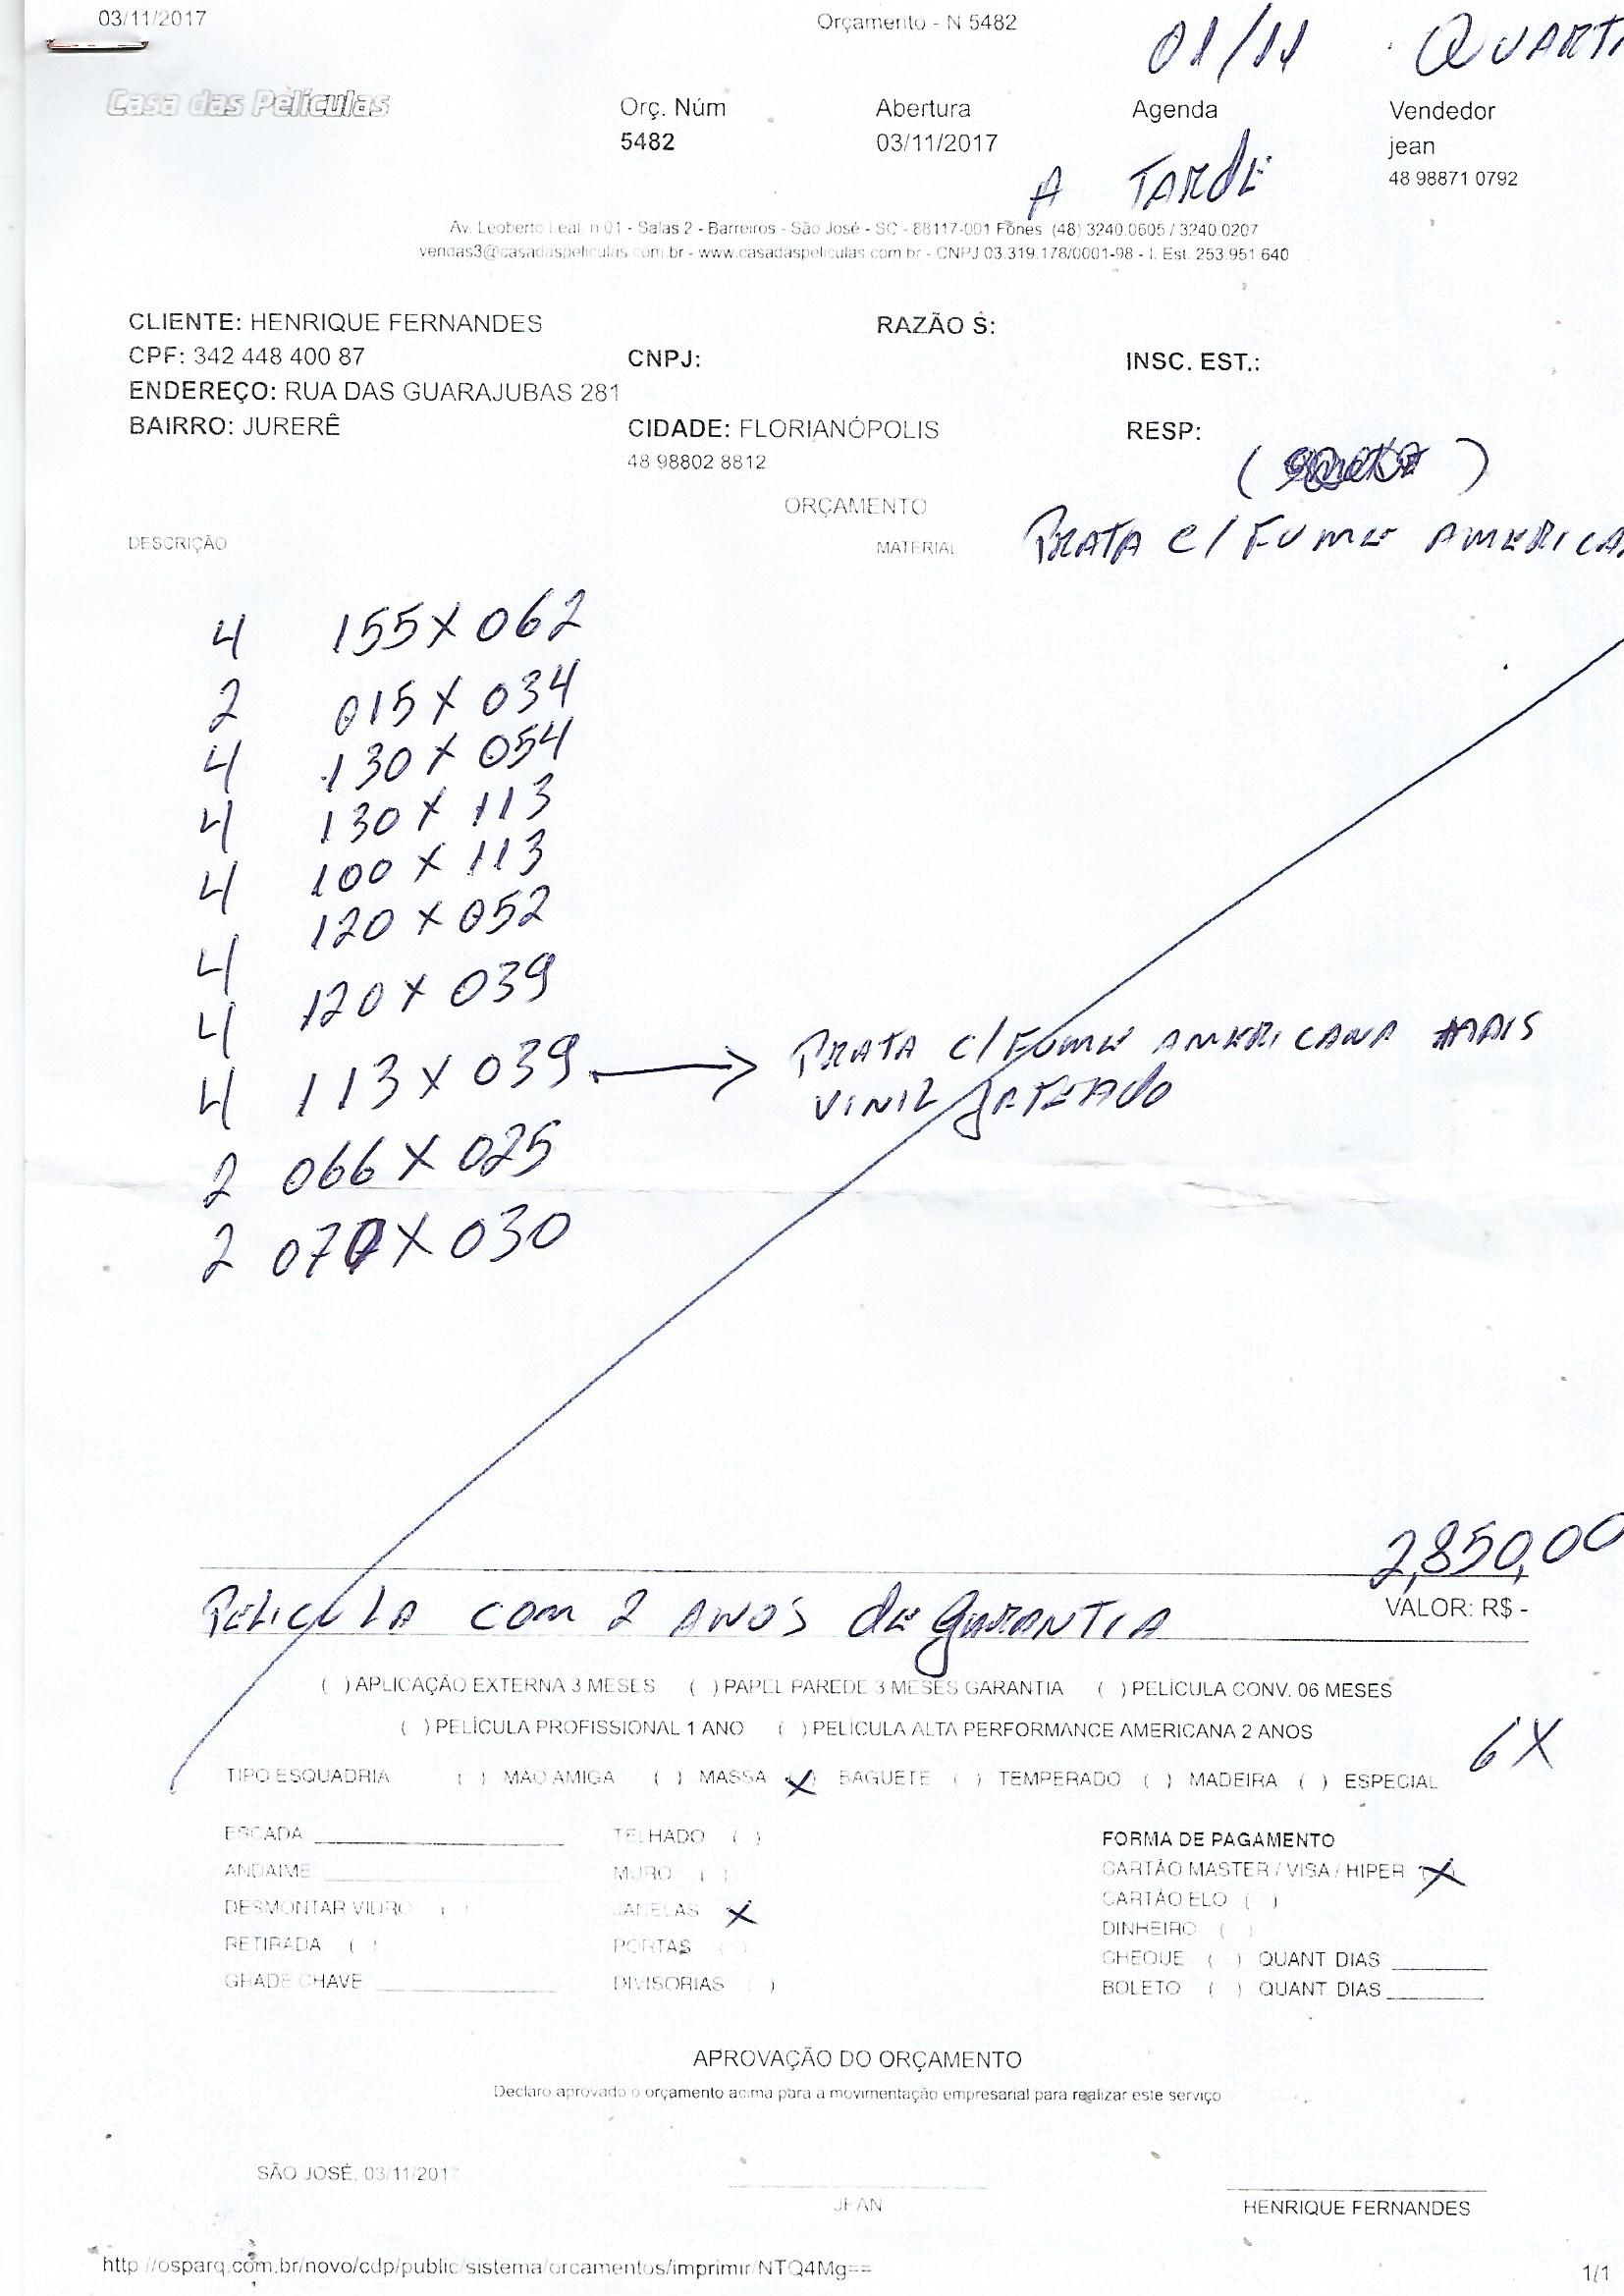 03/11/2017 Orçamento - N 5482
01/11 QUARTA
Casa das Películas Orç. Núm Abertura Agenda Vendedor
5482 03/11/2017 jean
A TARDE 48 98871 0792
Av. Leoberto Leal n 01 - Salas 2 - Barreiros - São José - SC - 88117-001 Fones (48) 3240.0605 / 3240.0207
vendas3@casadaspeliculas.com.br - www.casadaspeliculas.com.br - CNPJ 03.319.178/0001-98 - I. Est. 253.951.640
CLIENTE: HENRIQUE FERNANDES RAZÃO S:
CPF: 342 448 400 87 CNPJ: INSC. EST.:
ENDEREÇO: RUA DAS GUARAJUBAS 281
BAIRRO: JURERÊ CIDADE: FLORIANÓPOLIS RESP:
48 98802 8812
( )
ORÇAMENTO
DESCRIÇÃO MATERIAL PRATA C/ FUME AMERICA
4 155 X 062
2 015 X 034
4 130 X 054
4 130 X 113
4 100 X 113
4 120 X 052
4 120 X 039
4 113 X 039 → PRATA C/ FUME AMERICANA MAIS
VINIL JATEADO
2 066 X 025
2 070 X 030
2,850,00
PELICULA COM 2 ANOS DE GARANTIA VALOR: R$ -
( ) APLICAÇÃO EXTERNA 3 MESES ( ) PAPEL PAREDE 3 MESES GARANTIA ( ) PELÍCULA CONV. 06 MESES
( ) PELÍCULA PROFISSIONAL 1 ANO ( ) PELÍCULA ALTA PERFORMANCE AMERICANA 2 ANOS
6X
TIPO ESQUADRIA ( ) MÃO AMIGA ( ) MASSA (X) BAGUETE ( ) TEMPERADO ( ) MADEIRA ( ) ESPECIAL
ESCADA ____ TELHADO ( ) FORMA DE PAGAMENTO
ANDAIME ____ MURO ( ) CARTÃO MASTER / VISA / HIPER (X)
DESMONTAR VIDRO ( ) JANELAS (X) CARTÃO ELO ( )
RETIRADA ( ) PORTAS ( ) DINHEIRO ( )
GRADE CHAVE ____ DIVISORIAS ( ) CHEQUE ( ) QUANT DIAS ____
BOLETO ( ) QUANT DIAS ____
APROVAÇÃO DO ORÇAMENTO
Declaro aprovado o orçamento acima para a movimentação empresarial para realizar este serviço
SÃO JOSÉ, 03/11/2017
JEAN HENRIQUE FERNANDES
http://osparq.com.br/novo/cdp/public/sistema/orcamentos/imprimir/NTQ4Mg== 1/1